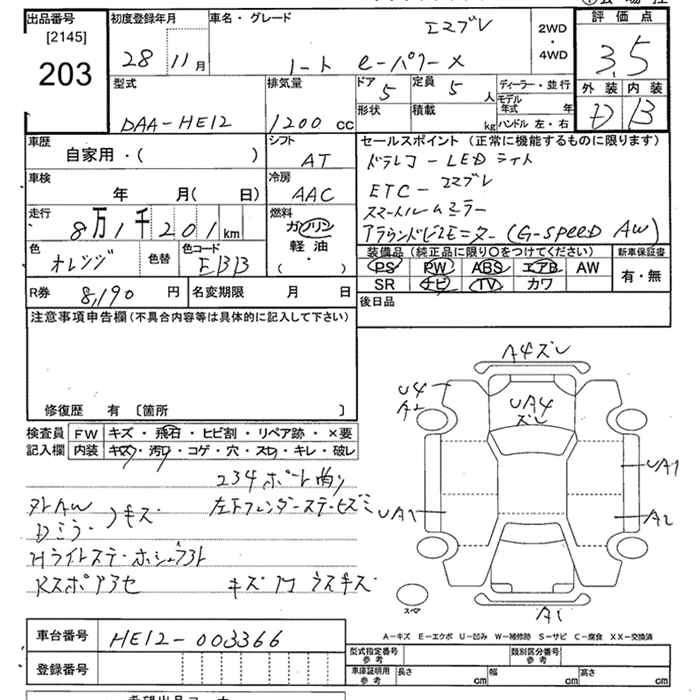 出品番号
[2145]
203
初度登録年月
28 11月
車名・グレード
エマブレ
ノート e-パワーメ
2WD
・
4WD
評価点
3.5
外装 内装
D B
型式
DAA-HE12
排気量
1200 cc
ドア 5
定員 5 人
形状
積載 kg
ディーラー・並行
モデル年式 年
ハンドル 左・右
車歴
自家用・( )
シフト
AT
車検
年 月( 日)
冷房
AAC
走行
8万1千201km
燃料
ガソリン
軽油
( ・ )
色
オレンジ
色替
色コード
EBB
R券 8,190 円
名変期限 月 日
セールスポイント(正常に機能するものに限ります)
ドラレコ - LEDライト
ETC - エマブレ
スマートルームミラー
アラウンドビューモニター (G-SPEED AW)
装備品(純正品に限り○をつけてください)
PS PW ABS エアB AW
SR ナビ TV カワ
新車保証書
有・無
後日品
注意事項申告欄(不具合内容等は具体的に記入して下さい)
修復歴 有 〔箇所 〕
検査員
記入欄
FW キズ・飛石・ヒビ割・リペア跡・×要
内装 キズ・汚れ・コゲ・穴・スレ・キレ・破レ
234ボード曲り
外AW
Dミラー キズ
左下フェンダーステー
Hライトステー
キズ
A4ズレ
U4
A2
UA4
ズレ
UA1
UA1
A2
A1
スペア
A−キズ E−エクボ U−凹み W−補修跡 S−サビ C−腐食 XX−交換済
車台番号 HE12-003366
登録番号
型式指定番号
参考
類別区分番号
参考
車庫証明用
参考
長さ cm
幅 cm
高さ cm